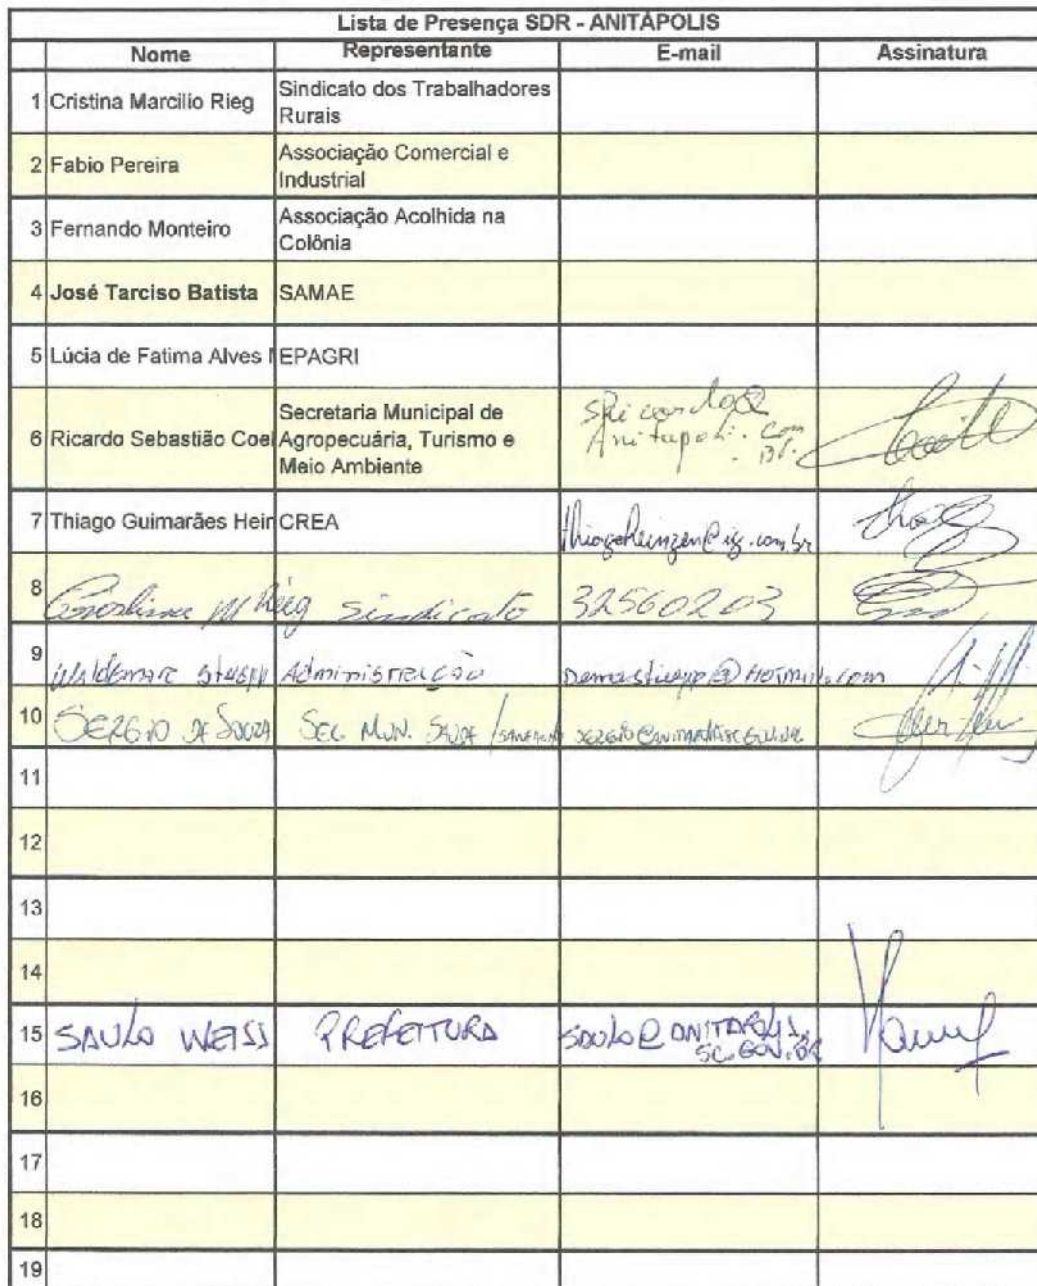 Lista de Presença SDR - ANITÁPOLIS
Nome Representante E-mail Assinatura
1 Cristina Marcilio Rieg Sindicato dos Trabalhadores
Rurais
2 Fabio Pereira Associação Comercial e
Industrial
3 Fernando Monteiro Associação Acolhida na
Colônia
4 José Tarciso Batista SAMAE
5 Lúcia de Fatima Alves EPAGRI
6 Ricardo Sebastião Coel Secretaria Municipal de
Agropecuária, Turismo e
Meio Ambiente
7 Thiago Guimarães Hein CREA thiagoheinzen@ig.com.br
8 M Rieg Sindicato 32560203
9 Waldemar Administração
10 SERGIO DE SOUZA SEC. MUN. SAÚDE
11
12
13
14
15 SAULO WEISS PREFEITURA SAULO@ANITAPOLIS.
SC.GOV.BR
16
17
18
19